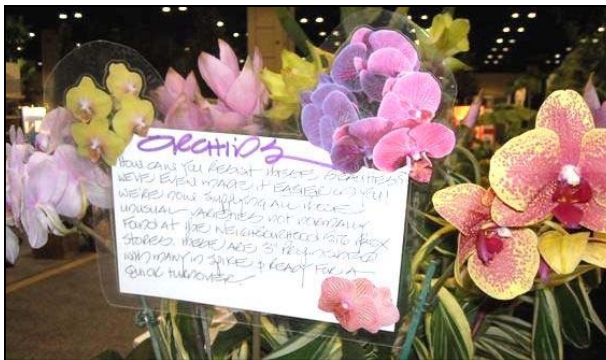 ORCHIDS
HOW CAN YOU RESIST THESE BEAUTIES?
WE'VE EVEN MADE IT EASIER FOR YOU!
WE'RE NOW SUPPLYING ALL
UNUSUAL VARIETIES NOT NORMALLY
FOUND AT THE NEIGHBOURHOOD BIG BOX
STORES. THESE ARE 3"
WITH MANY IN SPIKE & READY FOR A
QUICK TURNOVER.